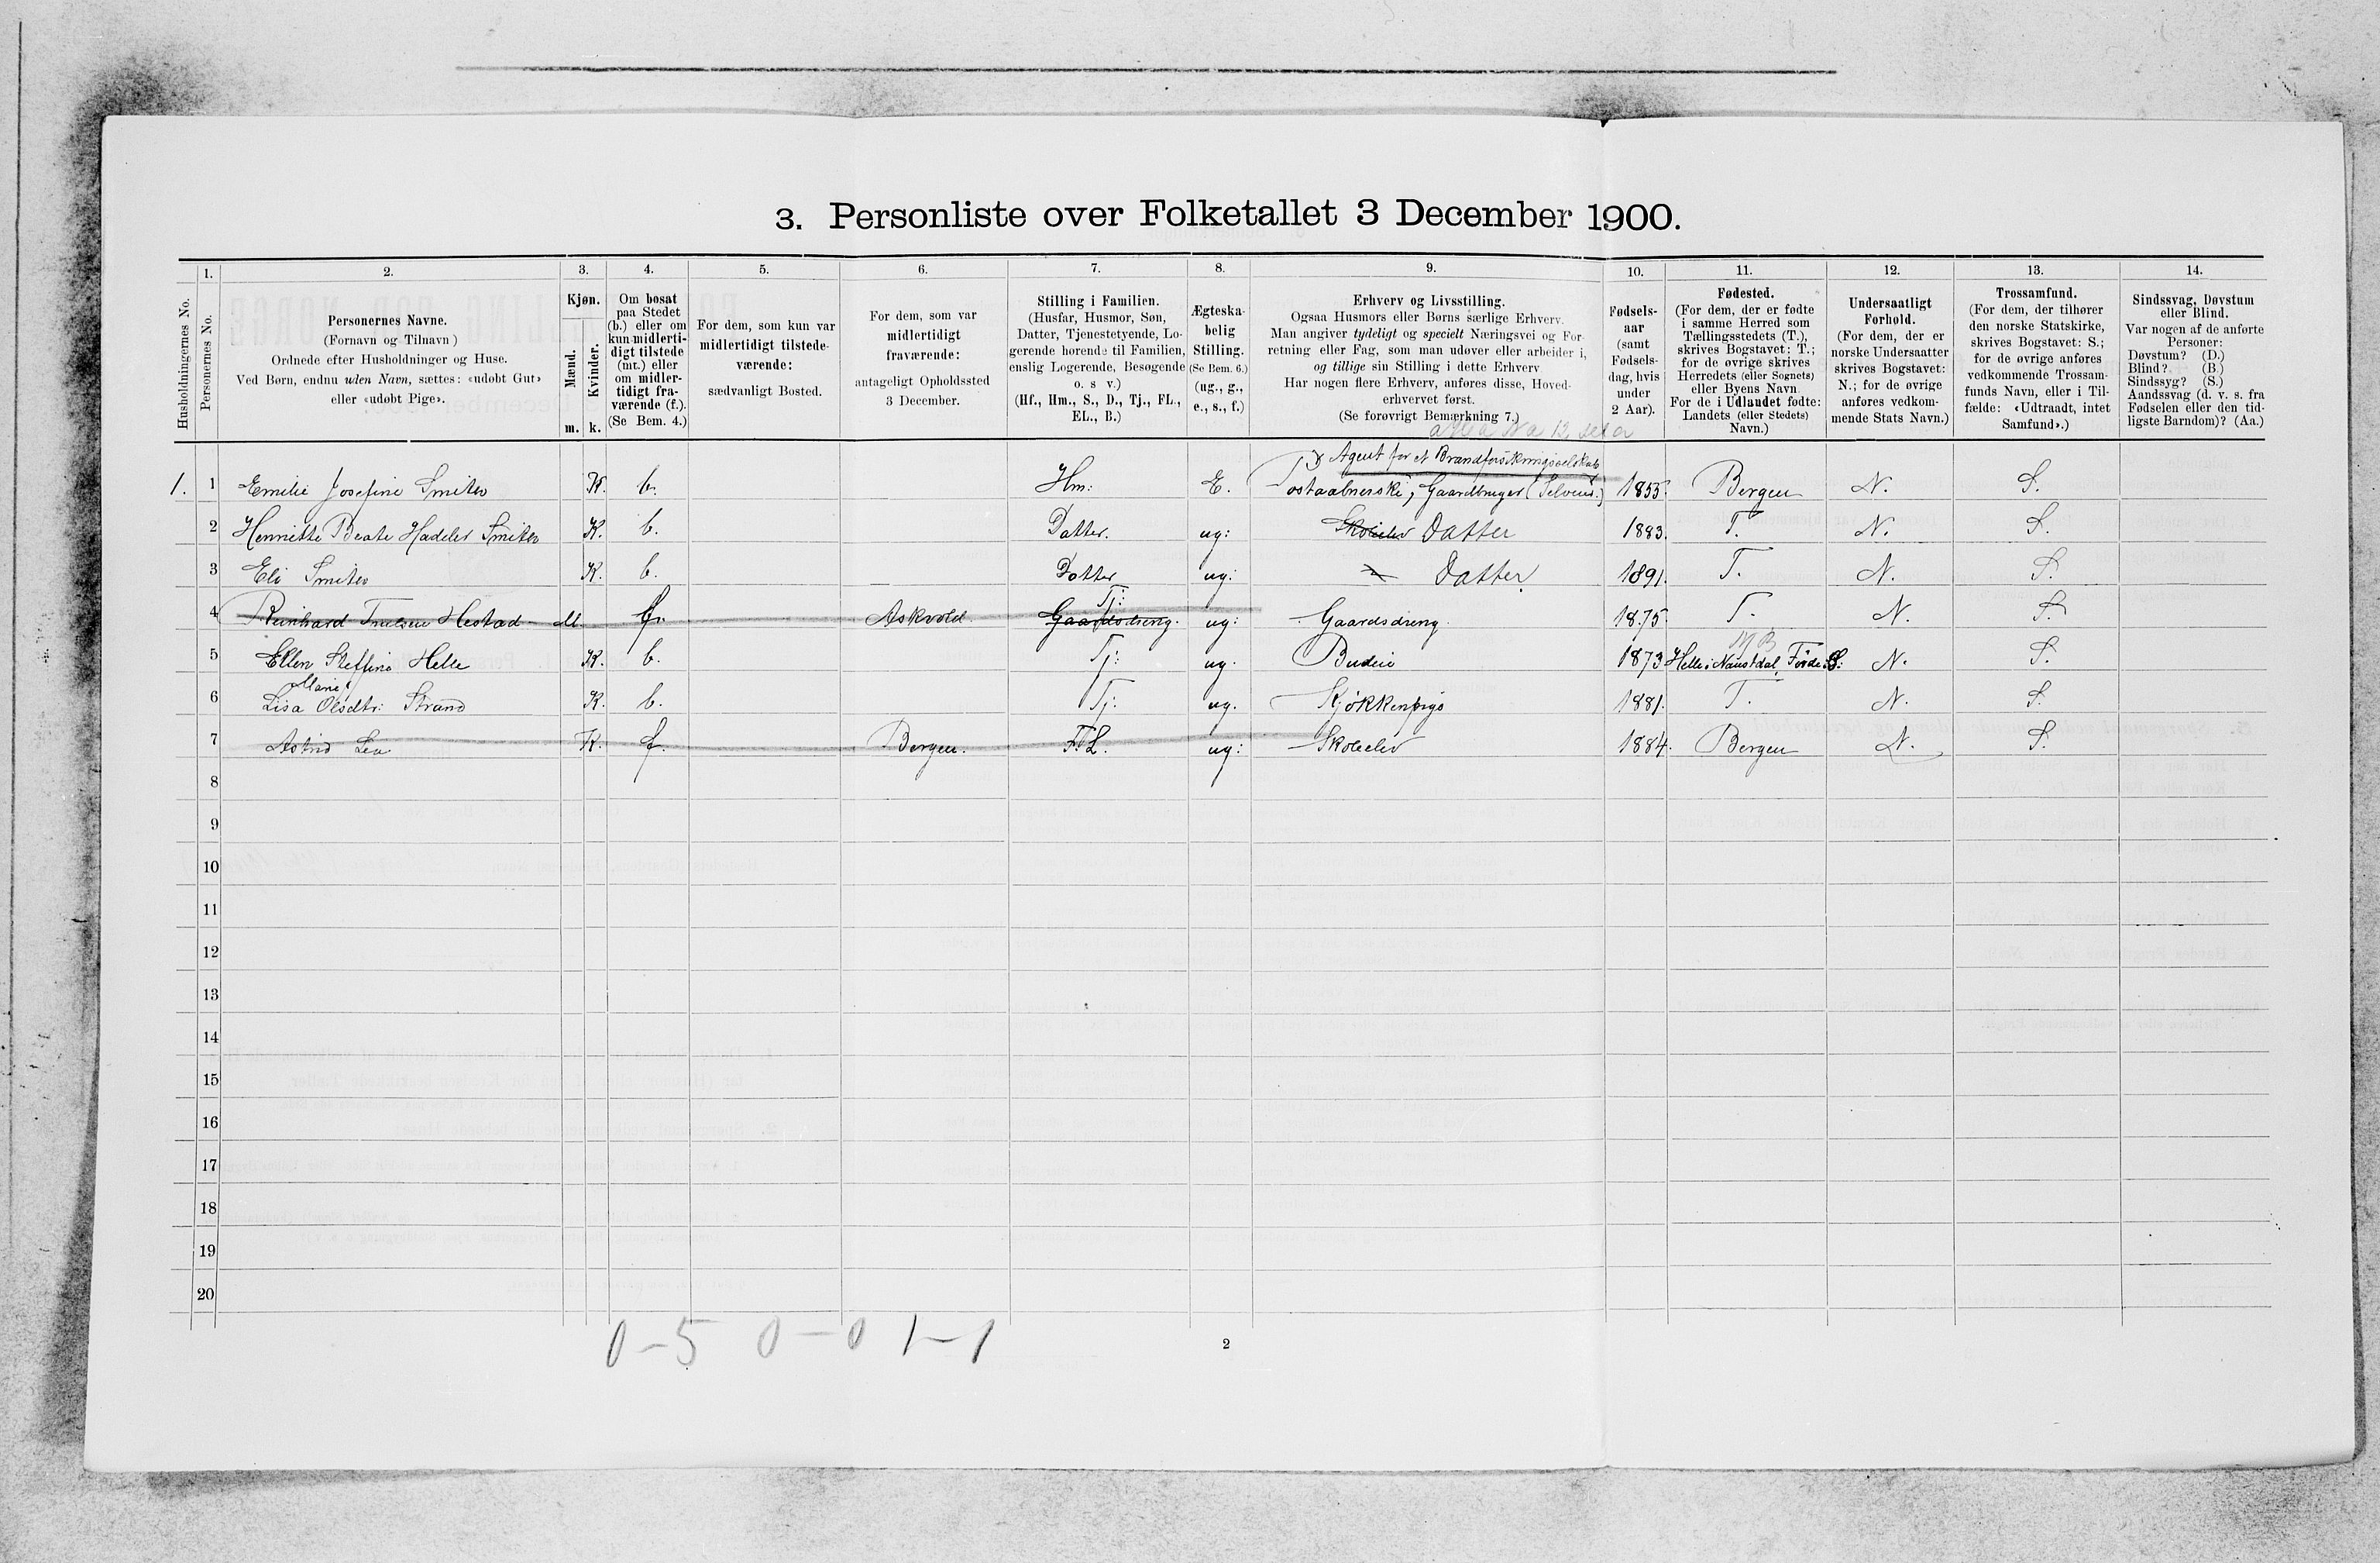 3. Personliste over Folketallet 3 December 1900.
Husholdningernes No.
1.
Personernes No.
2.
Personernes Navne.
(Fornavn og Tilnavn)
Ordnede efter Husholdninger og Huse.
Ved Børn, endnu uden Navn, sættes: «udøbt Gut»
eller «udøbt Pige».
3.
Kjøn.
Mænd.
Kvinder.
m. k.
4.
Om bosat
paa Stedet
(b.) eller om
kun midlerti-
digt tilstede
(mt.) eller
om midler-
tidigt fra-
værende (f.).
(Se Bem. 4.)
5.
For dem, som kun var
midlertidigt tilstede-
værende:
sædvanligt Bosted.
6.
For dem, som var
midlertidigt
fraværende:
antageligt Opholdssted
3 December.
7.
Stilling i Familien.
(Husfar, Husmor, Søn,
Datter, Tjenestetyende, Lo-
gerende hørende til Familien,
enslig Logerende, Besøgende
o. s v.)
(Hf., Hm., S., D., Tj., FL.,
EL., B.)
8.
Ægteska-
belig
Stilling.
(Se Bem. 6.)
(ug., g.,
e., s., f.)
9.
Erhverv og Livsstilling.
Ogsaa Husmors eller Børns særlige Erhverv.
Man angiver tydeligt og specielt Næringsvei og For-
retning eller Fag, som man udøver eller arbeider i,
og tillige sin Stilling i dette Erhverv
Har nogen flere Erhverv, anføres disse, Hoved-
erhvervet først.
(Se forøvrigt Bemærkning 7.)
10.
Fødsels-
aar
(samt
Fødsels-
dag, hvis
under
2 Aar).
11.
Fødested.
(For dem, der er fødte
i samme Herred som
Tællingsstedets (T.),
skrives Bogstavet: T.;
for de øvrige skrives
Herredets (eller Sognets)
eller Byens Navn.
For de i Udlandet fødte:
Landets (eller Stedets)
Navn.)
12.
Undersaatligt
Forhold.
(For dem, der er
norske Undersaatter
skrives Bogstavet:
N.; for de øvrige
anføres vedkom-
mende Stats Navn.)
13.
Trossamfund.
(For dem, der tilhører
den norske Statskirke,
skrives Bogstavet: S.;
for de øvrige anføres
vedkommende Trossam-
funds Navn, eller i Til-
fælde: «Udtraadt, intet
Samfund».)
14.
Sindssvag, Døvstum
eller Blind.
Var nogen af de anførte
Personer:
Døvstum? (D.)
Blind? (B.)
Sindssyg? (S.)
Aandssvag (d. v. s. fra
Fødselen eller den tid-
ligste Barndom)? (Aa.)
Agent for et Brandforsikringsselskab
1. 1 Emilie Josefine Smith K. b. Hm: E. Postaabnerske, Gaardbruger (Selveier) 1855. Bergen N. S.
2 Henriette Beate Hadeler Smith K. b. Datter. ug: Skoleelev Datter 1883. T. N. S.
3 Eli Smith K. b. Datter ug: Datter 1891. T. N. S.
Tj:
4 Reinhard Hestad M. f. Askvold Gaardsdreng. ug: Gaardsdreng. 1875 T. N. S.
5 Ellen Steffine Helle K. b. Tj: ug. Budeie 1873 Helle i Naustdal, Førde S: N. S.
Marie
6 Lisa Olsdtr: Strand K. b. Tj: ug. Kjøkkenpige 1881. T. N. S.
7 Astrid Lea K. f. Bergen. F.L. ug: Skoleelev 1884. Bergen N. S.
8
9
10
11
12
13
14
15
16
17
18
19
20
0-5 0-0 1-1
2